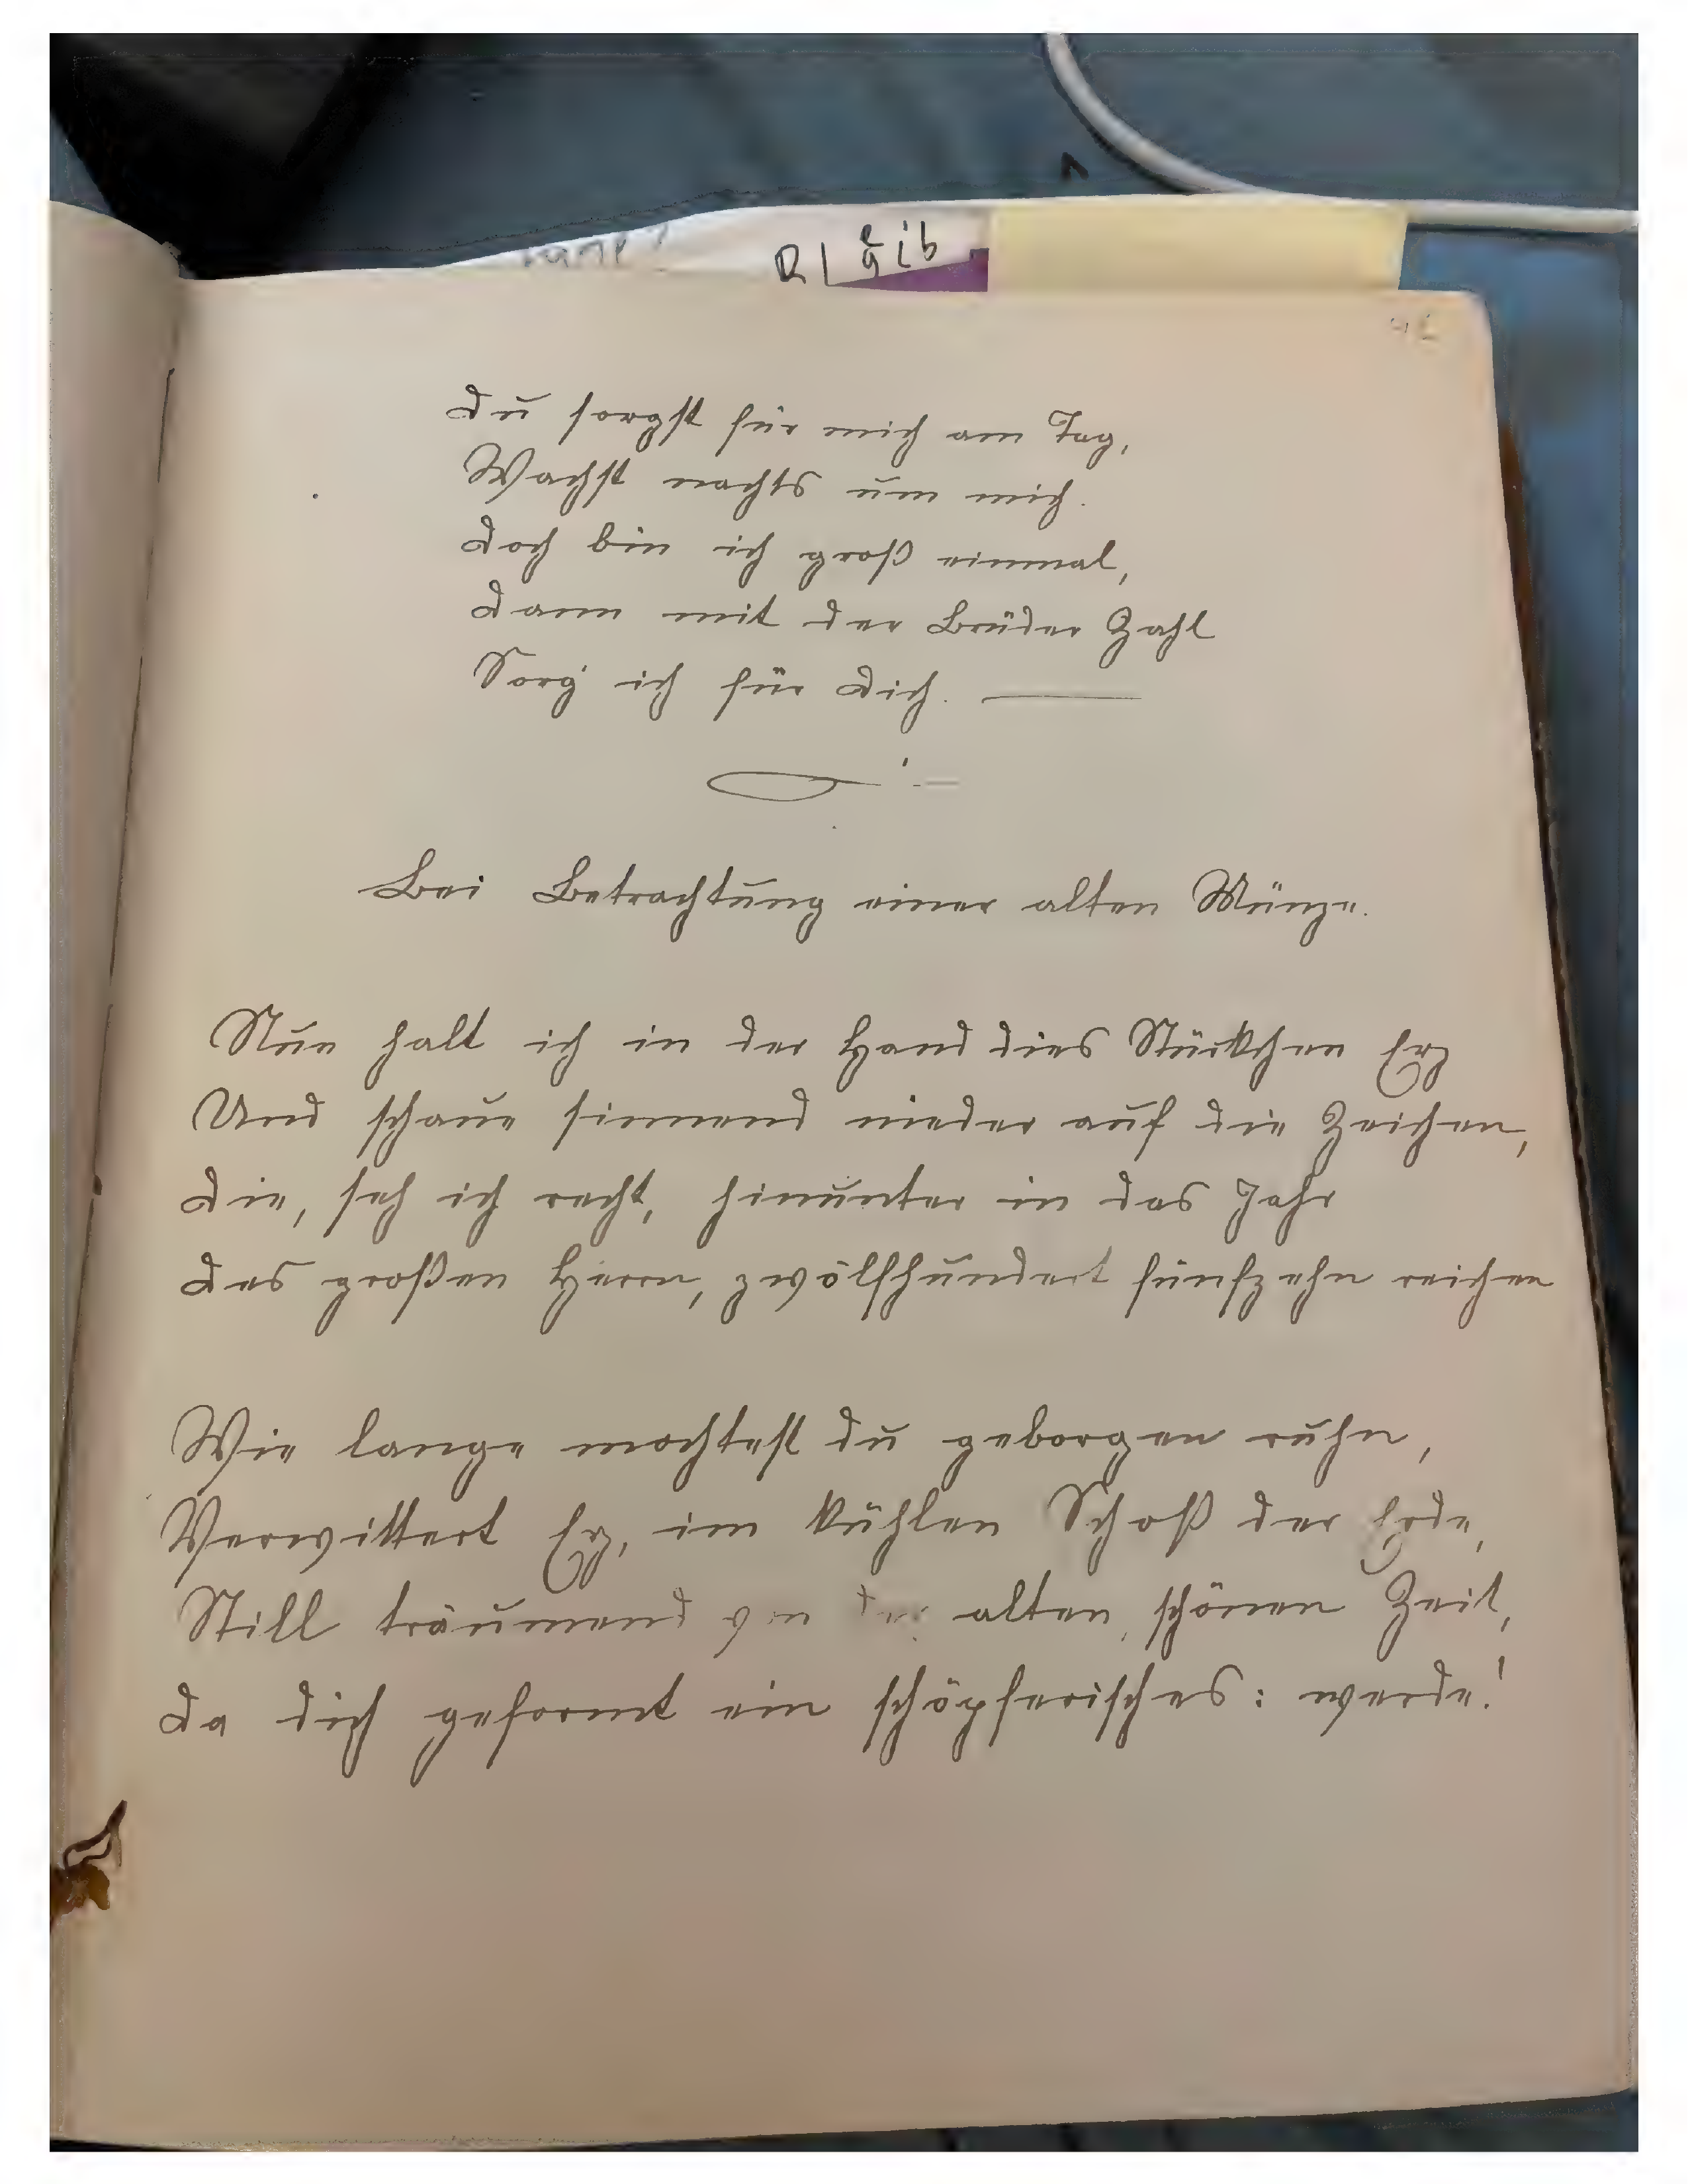 Du sorgst für mich am Tag,
Wachst nachts um mich.
Doch bin ich groß einmal,
Dann mit der Brüder Zahl
Sorg' ich für Dich.
Bei Betrachtung einer alten Münze.
Nun halt ich in der Hand dies Stückchen Erz
Und schaue sinnend nieder auf die Zeichen,
Die, seh ich recht, hinunter in das Jahr
Des großen Herrn, zwölfhundert fünfzehn reichen
Wie lange mochtest du geborgen ruhn,
Verwittert Erz, im kühlen Schoß der Erde,
Still träumend von der alten, schönen Zeit,
Da dich geformt ein schöpferisches: werde!